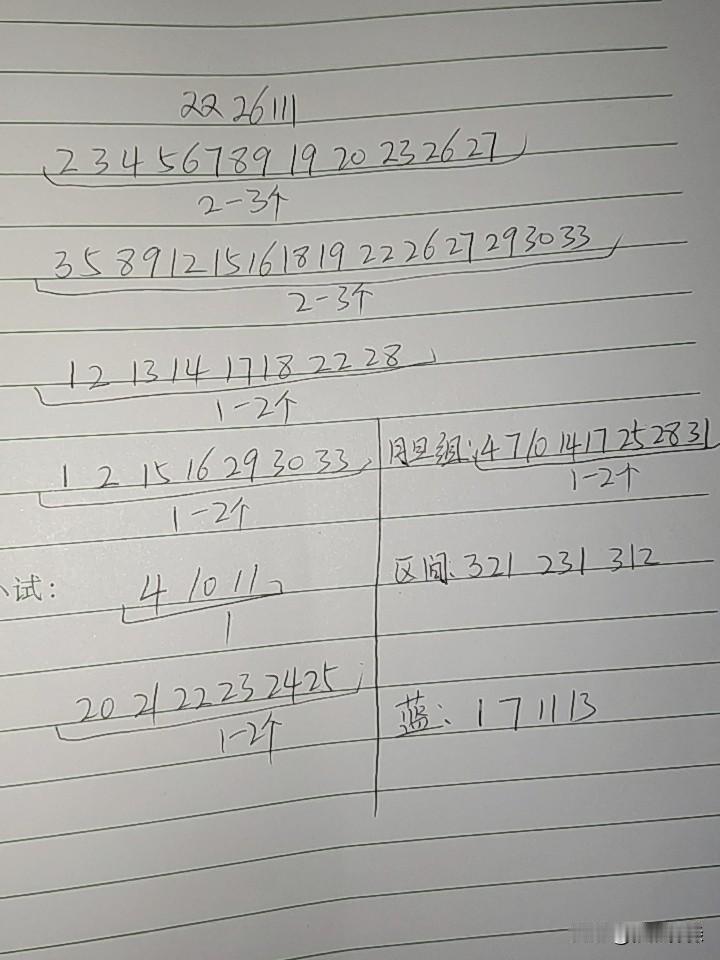 22 26 111
2 3 4 5 6 7 8 9 19 20 23 26 27
2-3个
3 5 8 9 12 15 16 18 19 22 26 27 29 30 33
2-3个
1 2 13 14 17 18 22 28
1-2个
1 2 15 16 29 30 33
1-2个
试:
4 10 11
1
20 21 22 23 24 25
1-2个
月旦组: 4 7 10 14 17 25 28 31
1-2个
区间: 321 231 312
蓝: 1 7 11 13